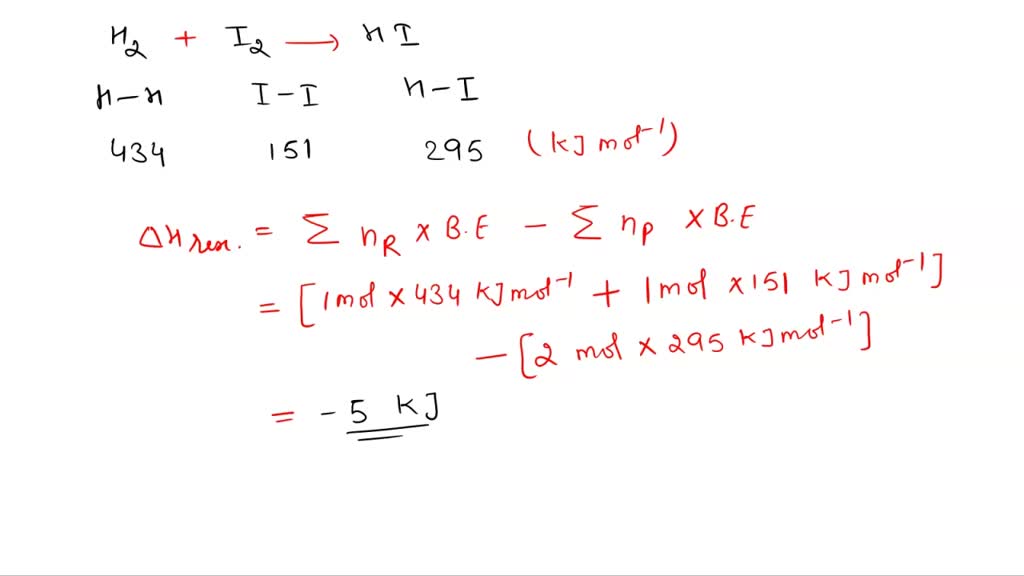 H₂ + I₂ → HI
H-H I-I H-I
434 151 295 (kJ mol⁻¹)
ΔH rxn. = Σ nR × B.E - Σ nP × B.E
= [1mol × 434 kJ mol⁻¹ + 1mol × 151 kJ mol⁻¹]
- [2 mol × 295 kJ mol⁻¹]
= -5 kJ